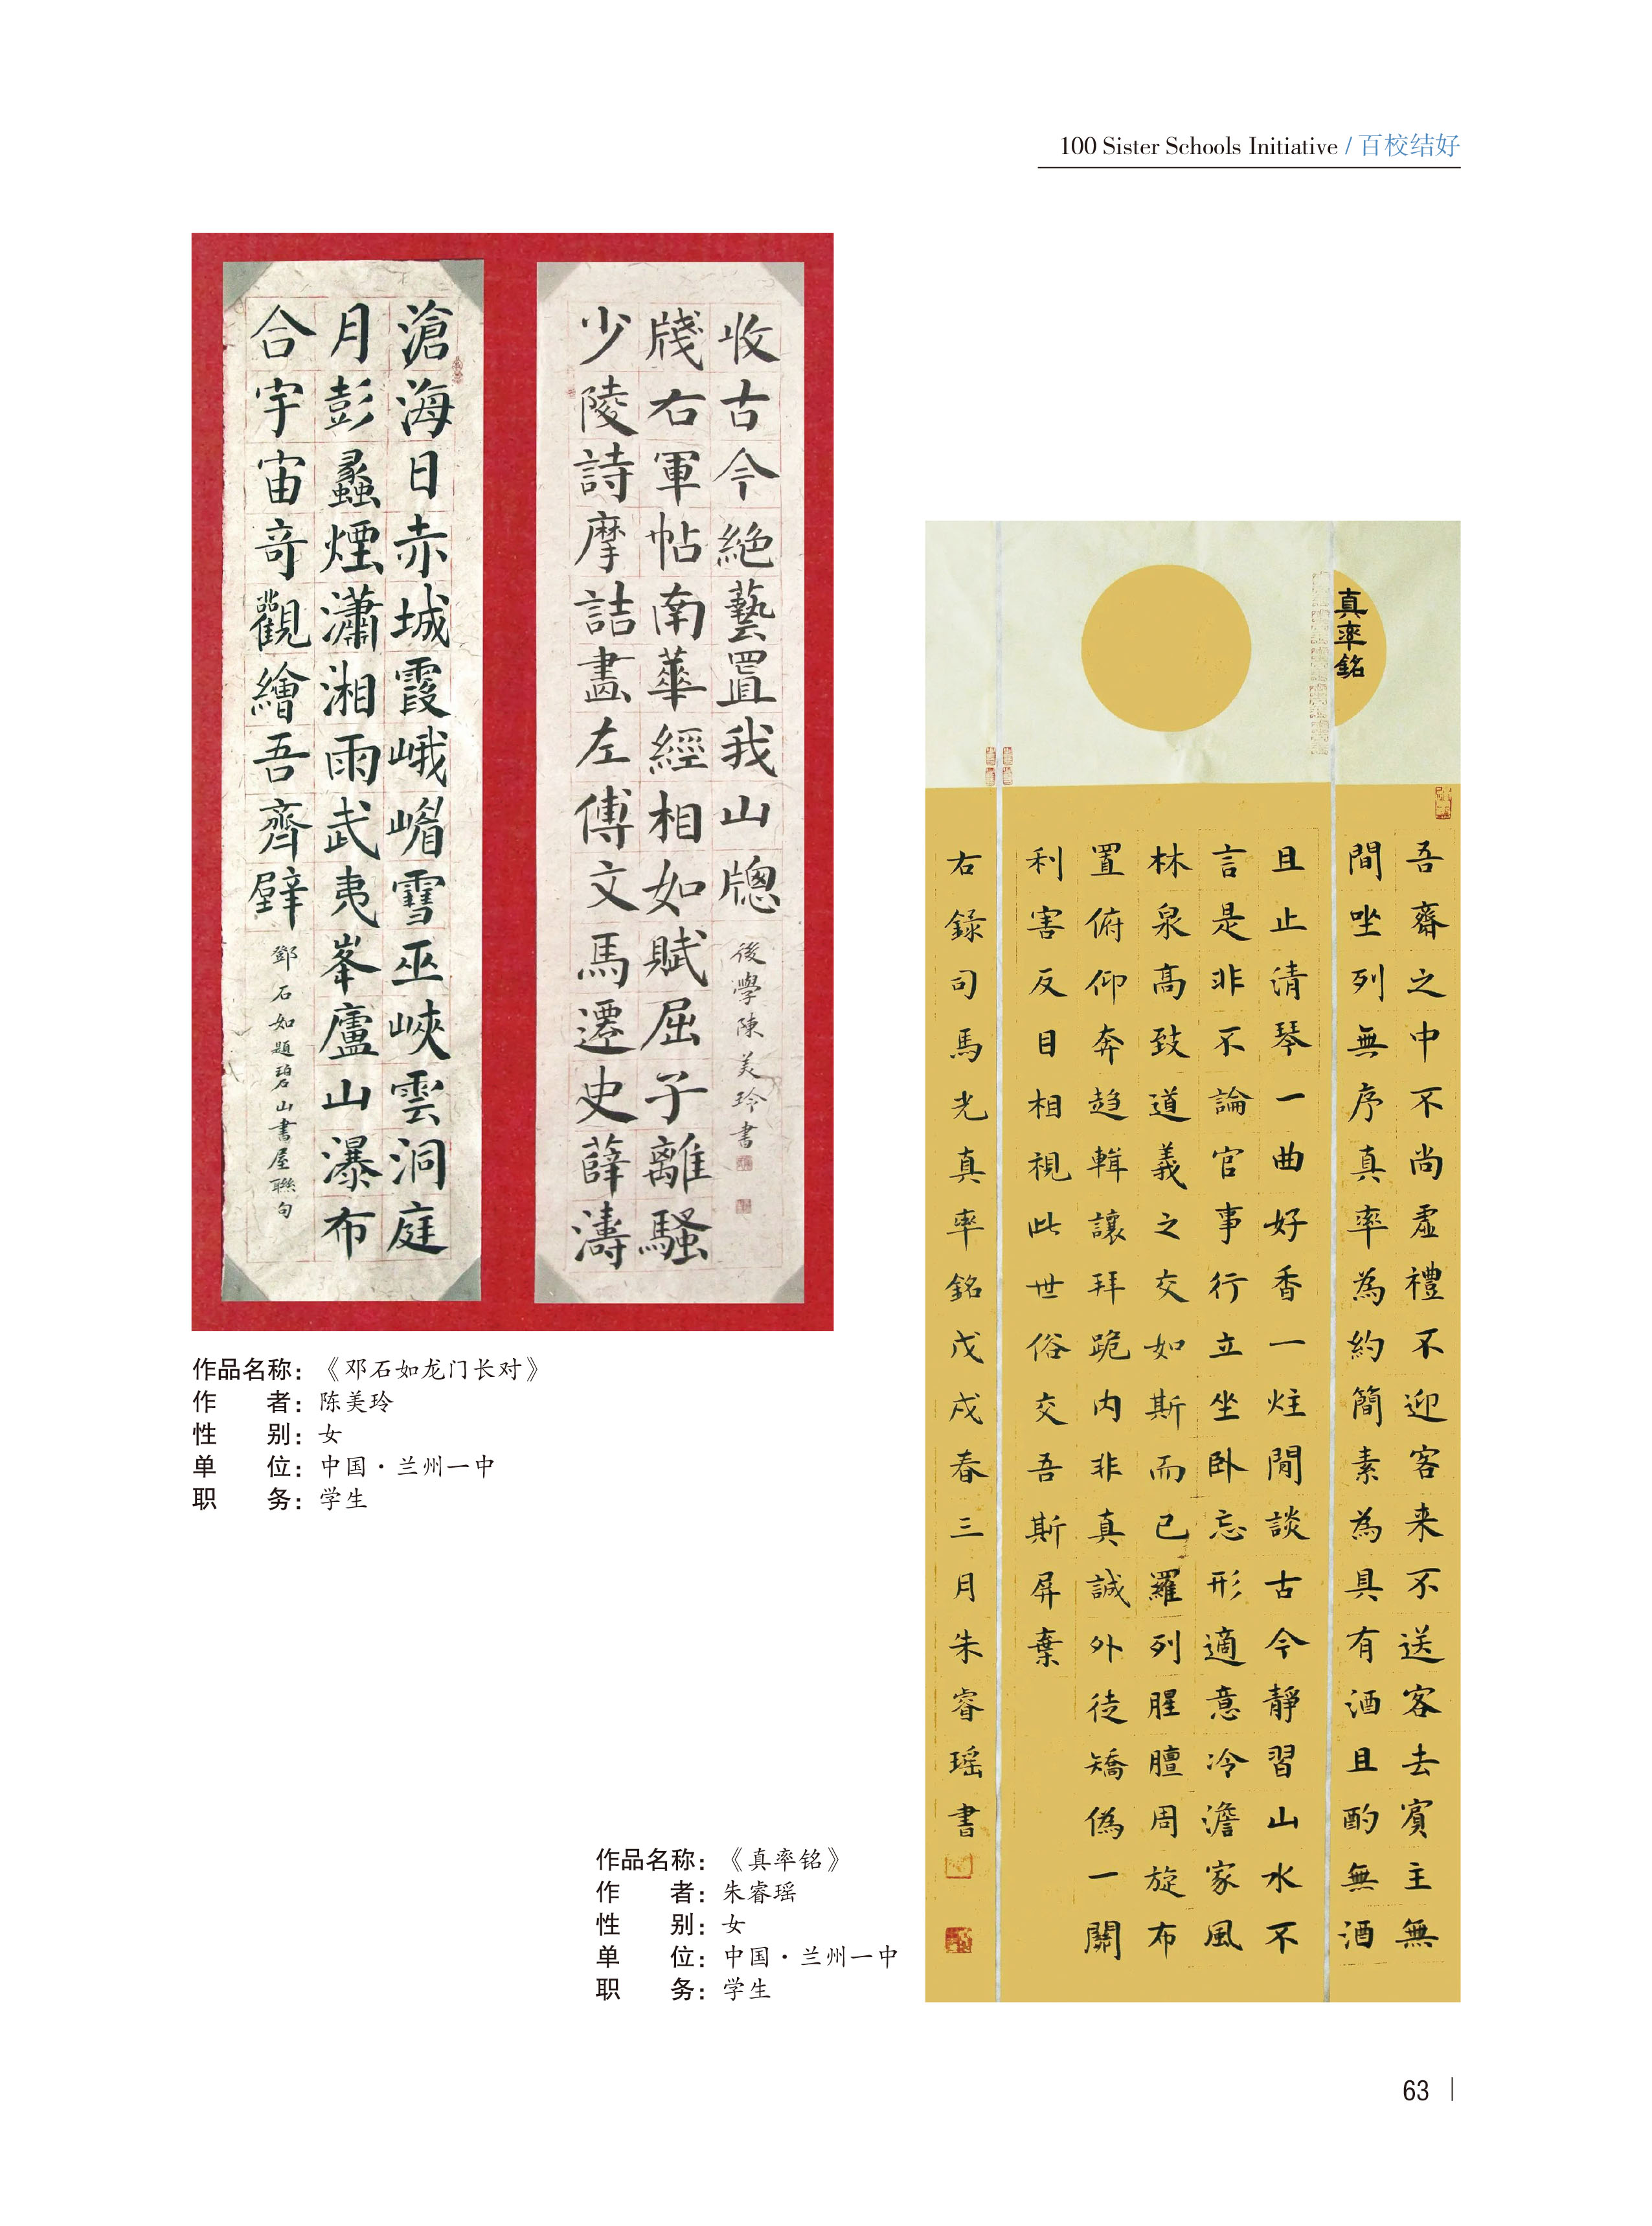 100 Sister Schools Initiative / 百校结好
滄海日赤城霞峨嵋雪巫峽雲洞庭
月彭蠡煙瀟湘雨武夷峯廬山瀑布
合宇宙奇觀繪吾齊壁
鄧石如題碧山書屋聯句
收古今絕藝置我山牕
後學陳美玲書
牋右軍帖南華經相如賦屈子離騷
少陵詩摩詰畫左傅文馬遷史薛濤
作品名称：《邓石如龙门长对》
作者：陈美玲
性别：女
单位：中国·兰州一中
职务：学生
真率銘
吾齋之中不尚虛禮不迎客来不送客去賓主無
間坐列無序真率為約簡素為具有酒且酌無酒
且止清琴一曲好香一炷閒談古今靜習山水不
言是非不論官事行立坐卧忘形適意冷澹家風
林泉高致道義之交如斯而已羅列腥膻周旋布
置俯仰奔趨輯讓拜跪内非真誠外徒矯偽一關
利害反目相視此世俗交吾斯屏棄
右錄司馬光真率銘戊戌春三月朱睿瑶書
作品名称：《真率铭》
作者：朱睿瑶
性别：女
单位：中国·兰州一中
职务：学生
63